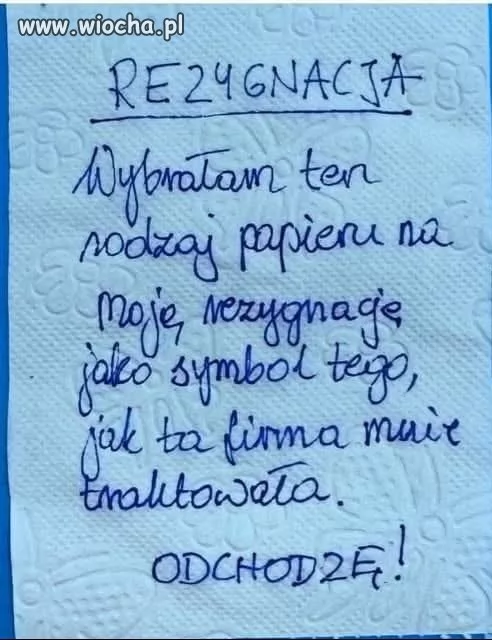 www.wiocha.pl
REZYGNACJA
Wybrałam ten
rodzaj papieru na
moją rezygnację
jako symbol tego,
jak ta firma mnie
traktowała.
ODCHODZĘ!